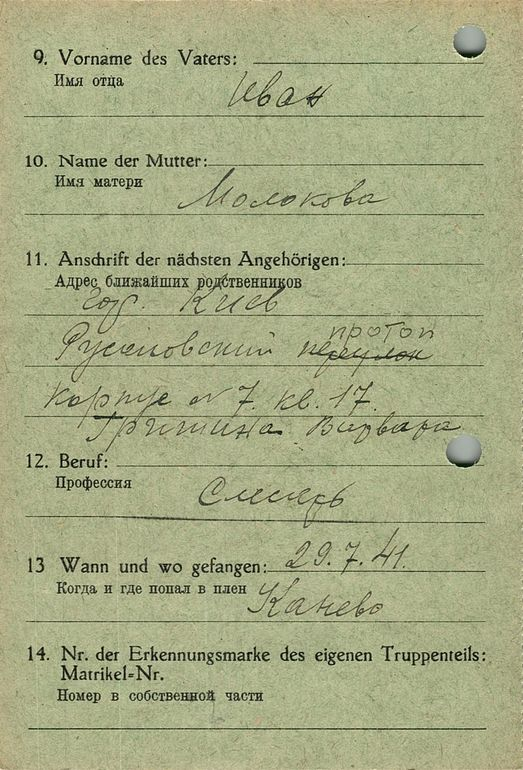 9. Vorname des Vaters:
Имя отца
Иван
10. Name der Mutter:
Имя матери
Молокова
11. Anschrift der nächsten Angehörigen:
Адрес ближайших родственников
гор. Киев
протоп
Русановский переулок
Корпус № 7. кв. 17.
Гришина Варвара
12. Beruf:
Профессия
Слесарь
13 Wann und wo gefangen: 29.7.41.
Когда и где попал в плен Канево
14. Nr. der Erkennungsmarke des eigenen Truppenteils:
Matrikel-Nr.
Номер в собственной части